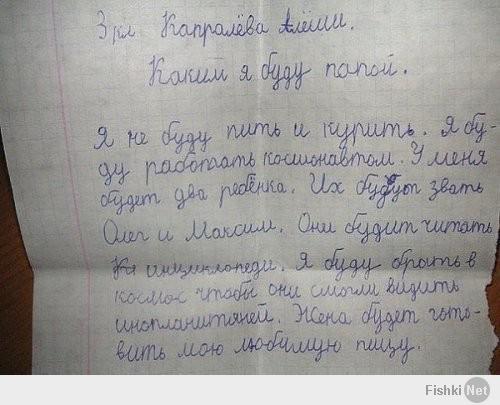 3 кл Капралёва Алёши.
Каким я буду папой.
Я не буду пить и курить. Я бу-
ду работать космонавтом. У меня
будет два ребёнка. Их будут звать
Олег и Максим. Они будит читать
инциклопеди. Я буду брыть в
космос чтобы они смогли видить
инопланитяней. Жена будет гото-
вить мою любимую пищу.
Fishki Net